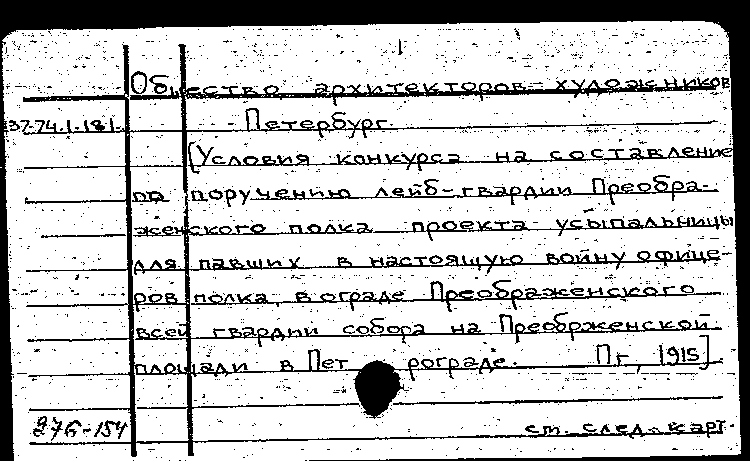 Общество архитекторов-художников
37-74.1-181 - Петербург.
[Условия конкурса на составление
по поручению лейб-гвардии Преобра-
женского полка проекта усыпальницы
для павших в настоящую войну офице-
ров полка, в ограде Преображенского
всей гвардии собора на Преобрженской
площади в Петрограде. Пг, 1915]
276-154 см. след. карт.